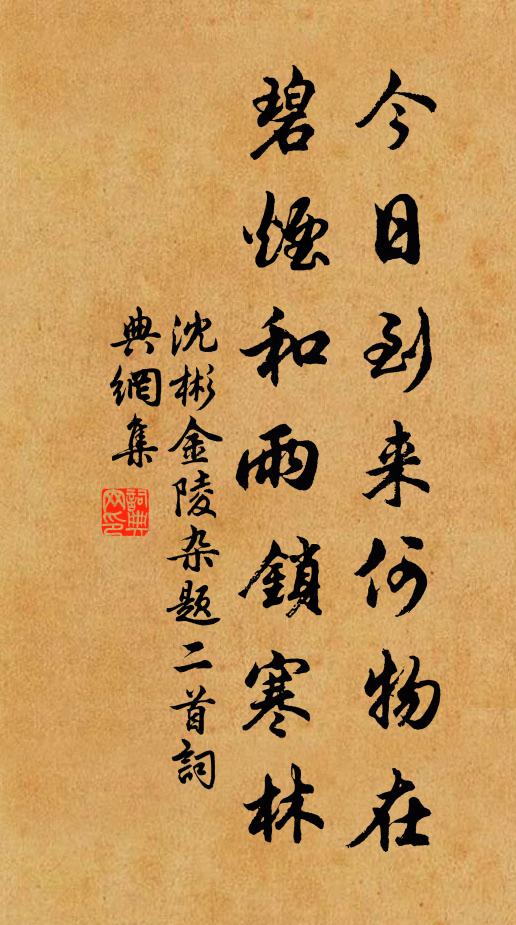 今日到来何物在
碧煙和雨鎖寒林
沈彬金陵杂题二首詞
典網集
詞典
网印